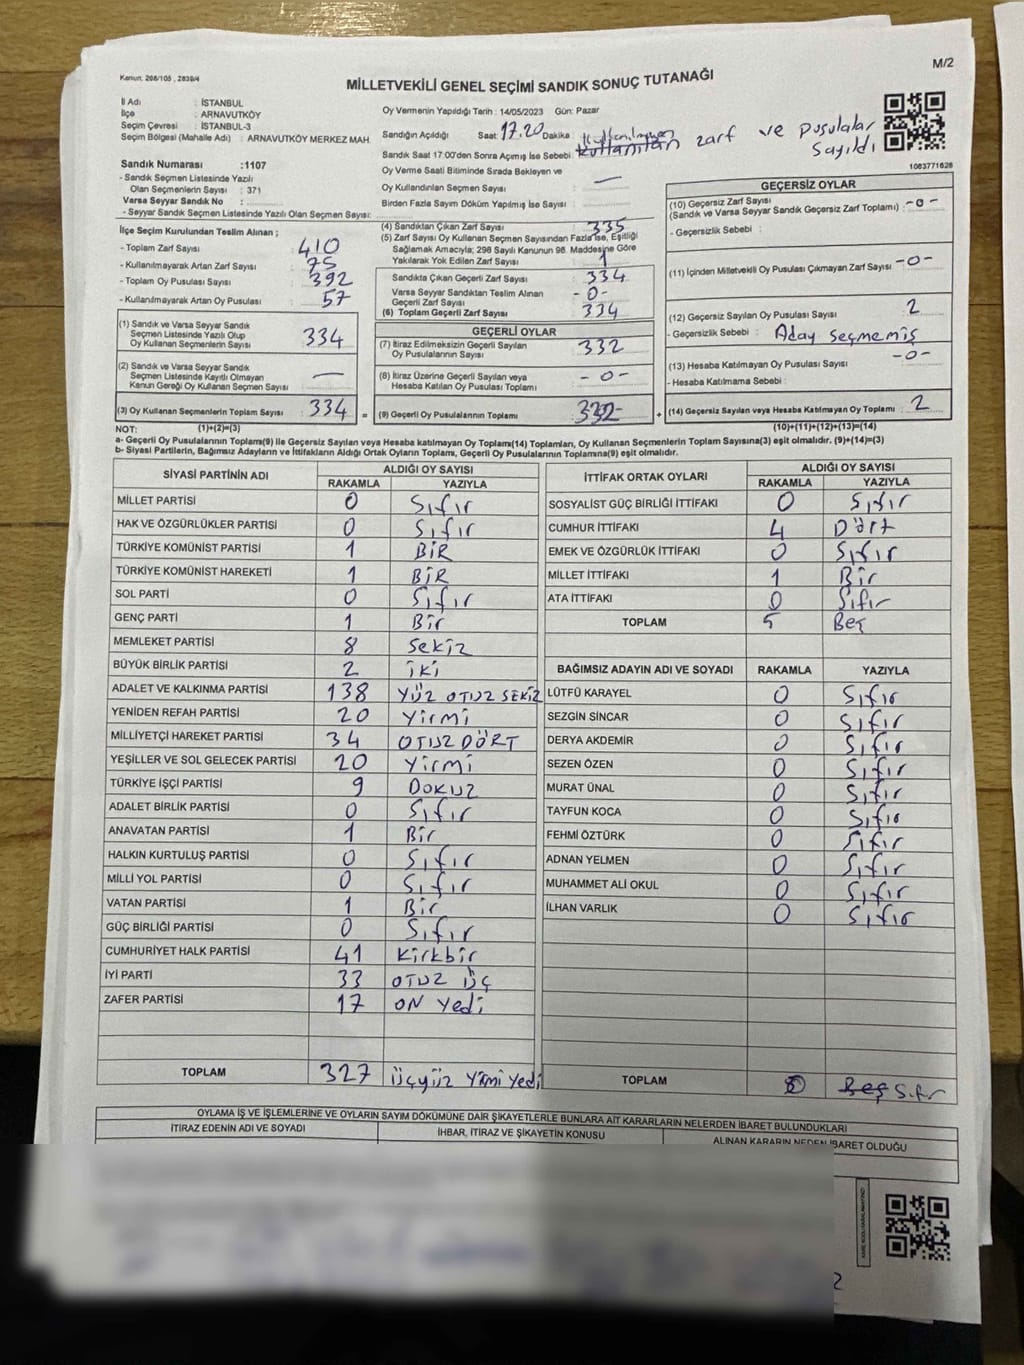 Kanun: 298/105 , 2839/4
M/2
MİLLETVEKİLİ GENEL SEÇİMİ SANDIK SONUÇ TUTANAĞI
İl Adı : İSTANBUL
İlçe : ARNAVUTKÖY
Seçim Çevresi : İSTANBUL-3
Seçim Bölgesi (Mahalle Adı) : ARNAVUTKÖY MERKEZ MAH.
Sandık Numarası :1107
- Sandık Seçmen Listesinde Yazılı
Olan Seçmenlerin Sayısı : 371
Varsa Seyyar Sandık No :
- Seyyar Sandık Seçmen Listesinde Yazılı Olan Seçmen Sayısı:
Oy Vermenin Yapıldığı Tarih : 14/05/2023 Gün: Pazar
Sandığın Açıldığı Saat: 17.20 Dakika :
Sandık Saat 17:00'den Sonra Açılmış İse Sebebi : Kullanılmayan zarf ve pusulalar sayıldı
Oy Verme Saati Bitiminde Sırada Bekleyen ve
Oy Kullandırılan Seçmen Sayısı : —
Birden Fazla Sayım Döküm Yapılmış İse Sayısı :
1083771628
İlçe Seçim Kurulundan Teslim Alınan ;
- Toplam Zarf Sayısı : 410
- Kullanılmayarak Artan Zarf Sayısı : 75
- Toplam Oy Pusulası Sayısı : 392
- Kullanılmayarak Artan Oy Pusulası : 57
(1) Sandık ve Varsa Seyyar Sandık
Seçmen Listesinde Yazılı Olup
Oy Kullanan Seçmenlerin Sayısı : 334
(2) Sandık ve Varsa Seyyar Sandık
Seçmen Listesinde Kayıtlı Olmayan
Kanun Gereği Oy Kullanan Seçmen Sayısı : —
(3) Oy Kullanan Seçmenlerin Toplam Sayısı : 334 =
(4) Sandıktan Çıkan Zarf Sayısı : 335
(5) Zarf Sayısı Oy Kullanan Seçmen Sayısından Fazla İse, Eşitliği
Sağlamak Amacıyla; 298 Sayılı Kanunun 98. Maddesine Göre
Yakılarak Yok Edilen Zarf Sayısı : 1
Sandıkta Çıkan Geçerli Zarf Sayısı : 334
Varsa Seyyar Sandıktan Teslim Alınan
Geçerli Zarf Sayısı : -0-
(6) Toplam Geçerli Zarf Sayısı : 334
GEÇERLİ OYLAR
(7) İtiraz Edilmeksizin Geçerli Sayılan
Oy Pusulalarının Sayısı : 332
(8) İtiraz Üzerine Geçerli Sayılan veya
Hesaba Katılan Oy Pusulası Toplamı : -0-
(9) Geçerli Oy Pusulalarının Toplamı : 332 +
GEÇERSİZ OYLAR
(10) Geçersiz Zarf Sayısı
(Sandık ve Varsa Seyyar Sandık Geçersiz Zarf Toplamı) : -0-
- Geçersizlik Sebebi :
(11) İçinden Milletvekili Oy Pusulası Çıkmayan Zarf Sayısı : -0-
(12) Geçersiz Sayılan Oy Pusulası Sayısı : 2
- Geçersizlik Sebebi : Aday seçmemiş
(13) Hesaba Katılmayan Oy Pusulası Sayısı : -0-
- Hesaba Katılmama Sebebi :
(14) Geçersiz Sayılan veya Hesaba Katılmayan Oy Toplamı : 2
NOT: (1)+(2)=(3) (10)+(11)+(12)+(13)=(14)
a- Geçerli Oy Pusulalarının Toplamı(9) ile Geçersiz Sayılan veya Hesaba katılmayan Oy Toplamı(14) Toplamları, Oy Kullanan Seçmenlerin Toplam Sayısına(3) eşit olmalıdır. (9)+(14)=(3)
b- Siyasi Partilerin, Bağımsız Adayların ve İttifakların Aldığı Ortak Oyların Toplamı, Geçerli Oy Pusulalarının Toplamına(9) eşit olmalıdır.
SİYASİ PARTİNİN ADI ALDIĞI OY SAYISI
RAKAMLA YAZIYLA
MİLLET PARTİSİ 0 Sıfır
HAK VE ÖZGÜRLÜKLER PARTİSİ 0 Sıfır
TÜRKİYE KOMÜNİST PARTİSİ 1 BİR
TÜRKİYE KOMÜNİST HAREKETİ 1 BİR
SOL PARTİ 0 Sıfır
GENÇ PARTİ 1 Bir
MEMLEKET PARTİSİ 8 Sekiz
BÜYÜK BİRLİK PARTİSİ 2 iki
ADALET VE KALKINMA PARTİSİ 138 YÜZ OTUZ SEKİZ
YENİDEN REFAH PARTİSİ 20 Yirmi
MİLLİYETÇİ HAREKET PARTİSİ 34 OTUZ DÖRT
YEŞİLLER VE SOL GELECEK PARTİSİ 20 Yirmi
TÜRKİYE İŞÇİ PARTİSİ 9 DOKUZ
ADALET BİRLİK PARTİSİ 0 Sıfır
ANAVATAN PARTİSİ 1 Bir
HALKIN KURTULUŞ PARTİSİ 0 Sıfır
MİLLİ YOL PARTİSİ 0 Sıfır
VATAN PARTİSİ 1 Bir
GÜÇ BİRLİĞİ PARTİSİ 0 Sıfır
CUMHURİYET HALK PARTİSİ 41 Kirkbir
İYİ PARTİ 33 OTUZ ÜÇ
ZAFER PARTİSİ 17 ON Yedi
TOPLAM 327 üçyüz Yirmi Yedi
İTTİFAK ORTAK OYLARI ALDIĞI OY SAYISI
RAKAMLA YAZIYLA
SOSYALİST GÜÇ BİRLİĞİ İTTİFAKI 0 Sıfır
CUMHUR İTTİFAKI 4 Dört
EMEK VE ÖZGÜRLÜK İTTİFAKI 0 Sıfır
MİLLET İTTİFAKI 1 Bir
ATA İTTİFAKI 0 Sıfır
TOPLAM 5 Beş
BAĞIMSIZ ADAYIN ADI VE SOYADI RAKAMLA YAZIYLA
LÜTFÜ KARAYEL 0 Sıfır
SEZGİN SİNCAR 0 Sıfır
DERYA AKDEMİR 0 Sıfır
SEZEN ÖZEN 0 Sıfır
MURAT ÜNAL 0 Sıfır
TAYFUN KOCA 0 Sıfır
FEHMİ ÖZTÜRK 0 Sıfır
ADNAN YELMEN 0 Sıfır
MUHAMMET ALİ OKUL 0 Sıfır
İLHAN VARLIK 0 Sıfır
TOPLAM 0 Beş Sıfır
OYLAMA İŞ VE İŞLEMLERİNE VE OYLARIN SAYIM DÖKÜMÜNE DAİR ŞİKAYETLERLE BUNLARA AİT KARARLARIN NELERDEN İBARET BULUNDUKLARI
İTİRAZ EDENİN ADI VE SOYADI İHBAR, İTİRAZ VE ŞİKAYETİN KONUSU ALINAN KARARIN NEDEN İBARET OLDUĞU